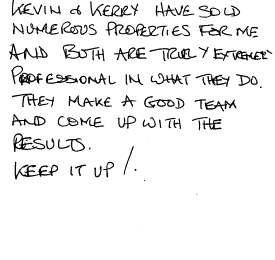 KEVIN & KERRY HAVE SOLD
NUMEROUS PROPERTIES FOR ME
AND BOTH ARE TRULY EXTREMELY
PROFESSIONAL IN WHAT THEY DO.
THEY MAKE A GOOD TEAM
AND COME UP WITH THE
RESULTS.
KEEP IT UP !.